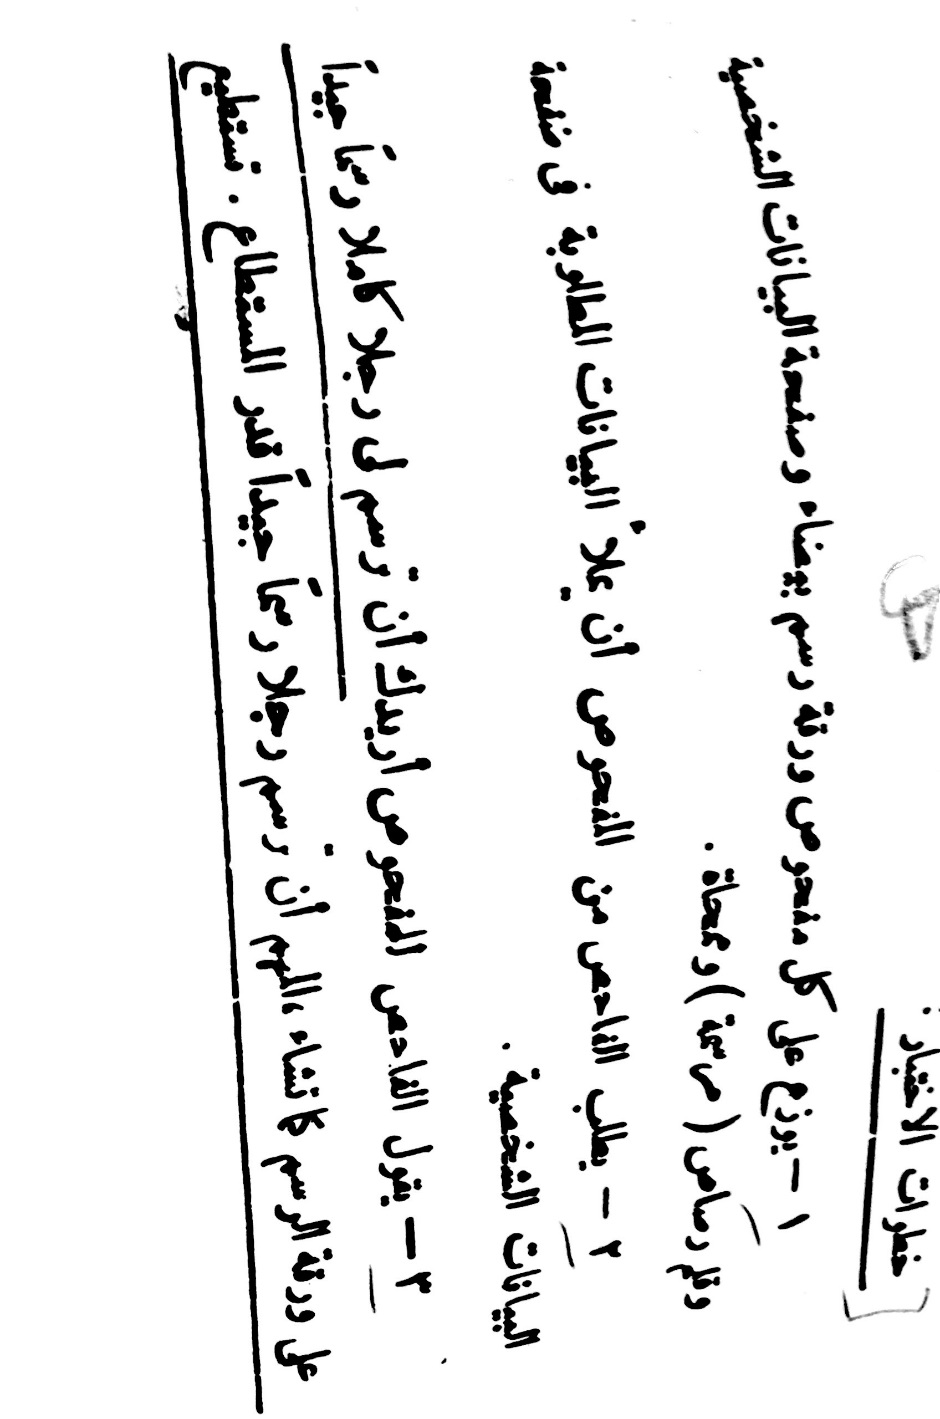 خطوات الاختبار :
١ – يوزع على كل مفحوص ورقة رسم بيضاء وصفحة البيانات الشخصية
وقلم رصاص (مرسمة) وممحاة .
٢ – يطلب الفاحص من المفحوص أن يملأ البيانات المطلوبة فى صفحة
البيانات الشخصية .
٣ – يقول الفاحص للمفحوص أريدك أن ترسم لى رجلا كاملا رسماً جيداً
على ورقة الرسم كما تشاء ، المهم أن ترسم رجلا رسماً جيداً قدر المستطاع . تستطيع